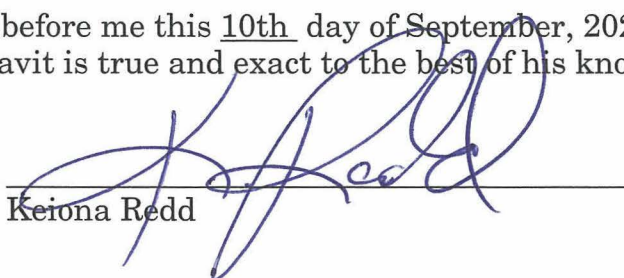 before me this 10th day of September, 202
avit is true and exact to the best of his kno
K Redd
Keiona Redd